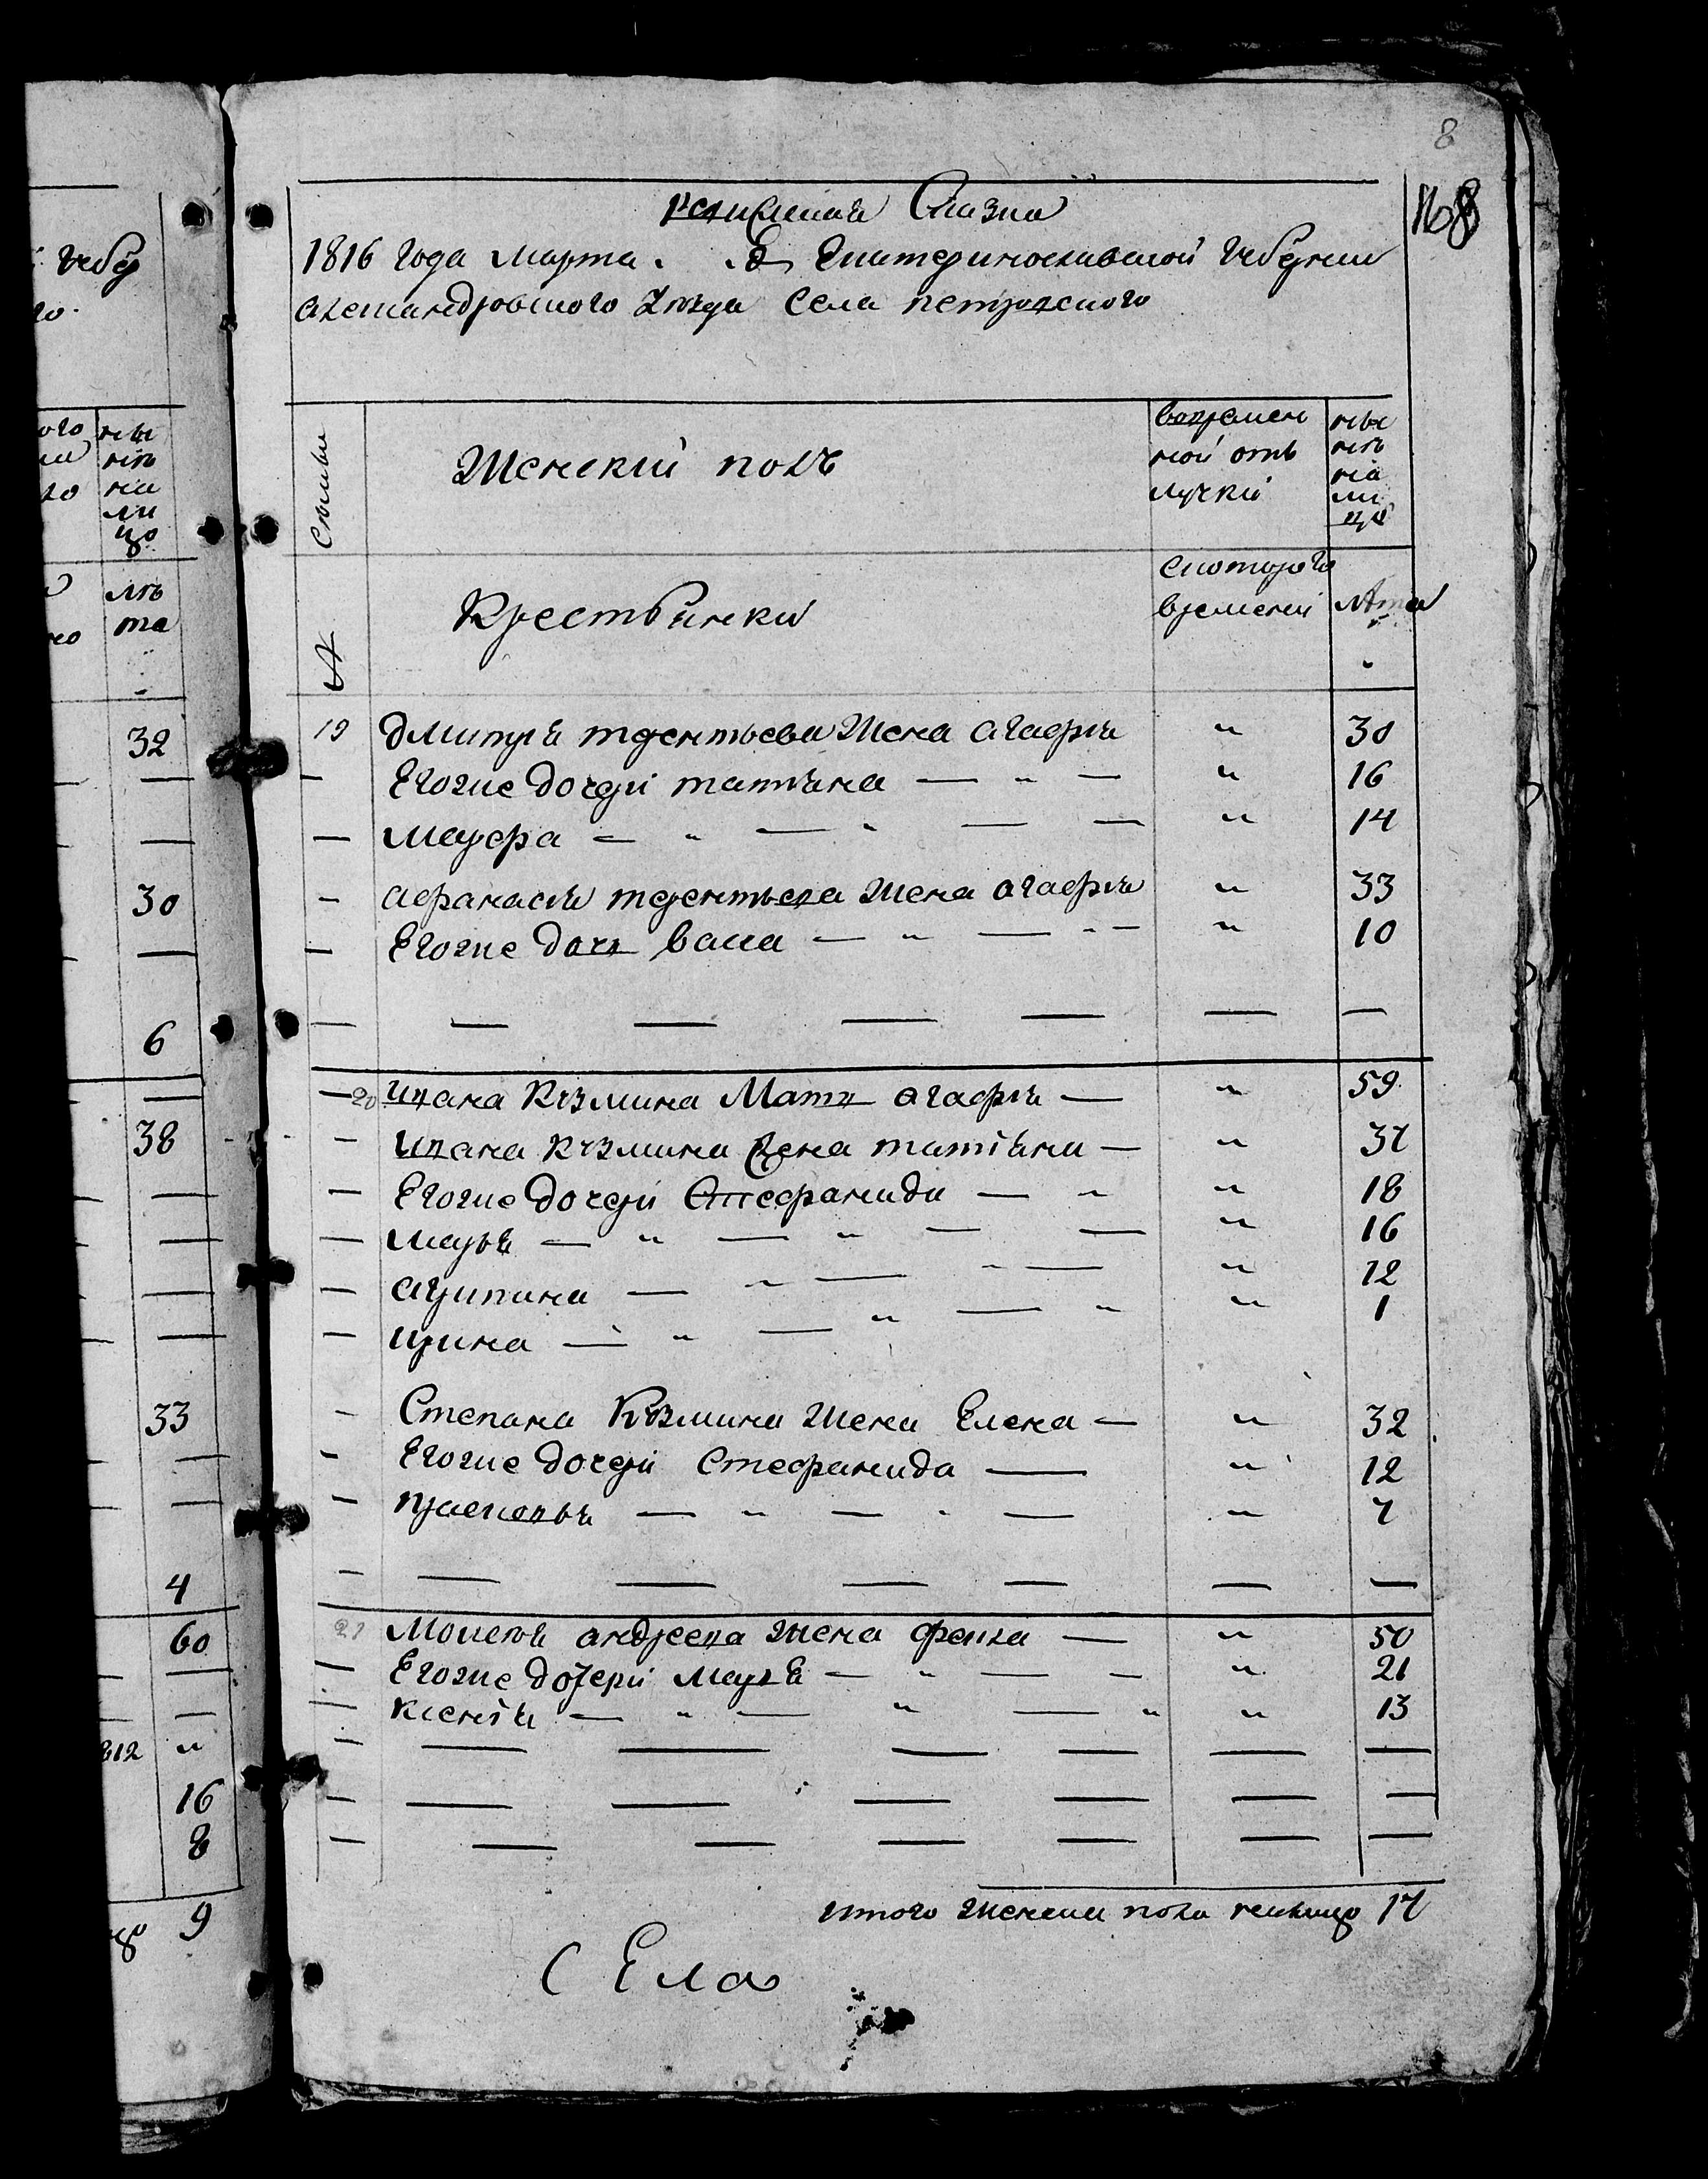 8
№ 8
ревизская Сказка
1816 года марта . . . дня Екатеринославской губернии
александровского уезда Села петровского
Семьи
Женский полъ
вовремен
ной отъ
лучки
ны
не
на
ли
цо
№
Крестьянки
скоторого
времени
лета
19 дмитрия терентьева Жена агафия " 30
— Егожие дочери татияна — " — " 16
— марфа — " — " — — " 14
— афанасия терентьева жена агафия " 33
— Егожие дочь васса — " — " — " 10
— — — — — — —
— 20 ивана Кузмина Мать агафия — " 59
— ивана кузмина жена татияна — " 37
— Егожие дочери Стефанида — " " 18
— марья — " — " — — " 16
— агрипина — " — " — " 12
— ирина — " — " — " " 1
— Степана Кузмина жена Елена — " 32
— Егожие дочери Стефанида — " 12
— прасковья — " — " — " 7
— — — — — — —
21 Мокея андреева жена фекла — " 50
— Егожие дочери марья — " — — " 21
— ксения — " — " — " " 13
— — — — — — —
— — — — — — —
— — — — — — —
итого женска пола налицо 17
СЕла
губер
го.
ого
ны
не
на
ли
цо
ле
та
32
30
6
38
33
4
60
812 "
16
8
9